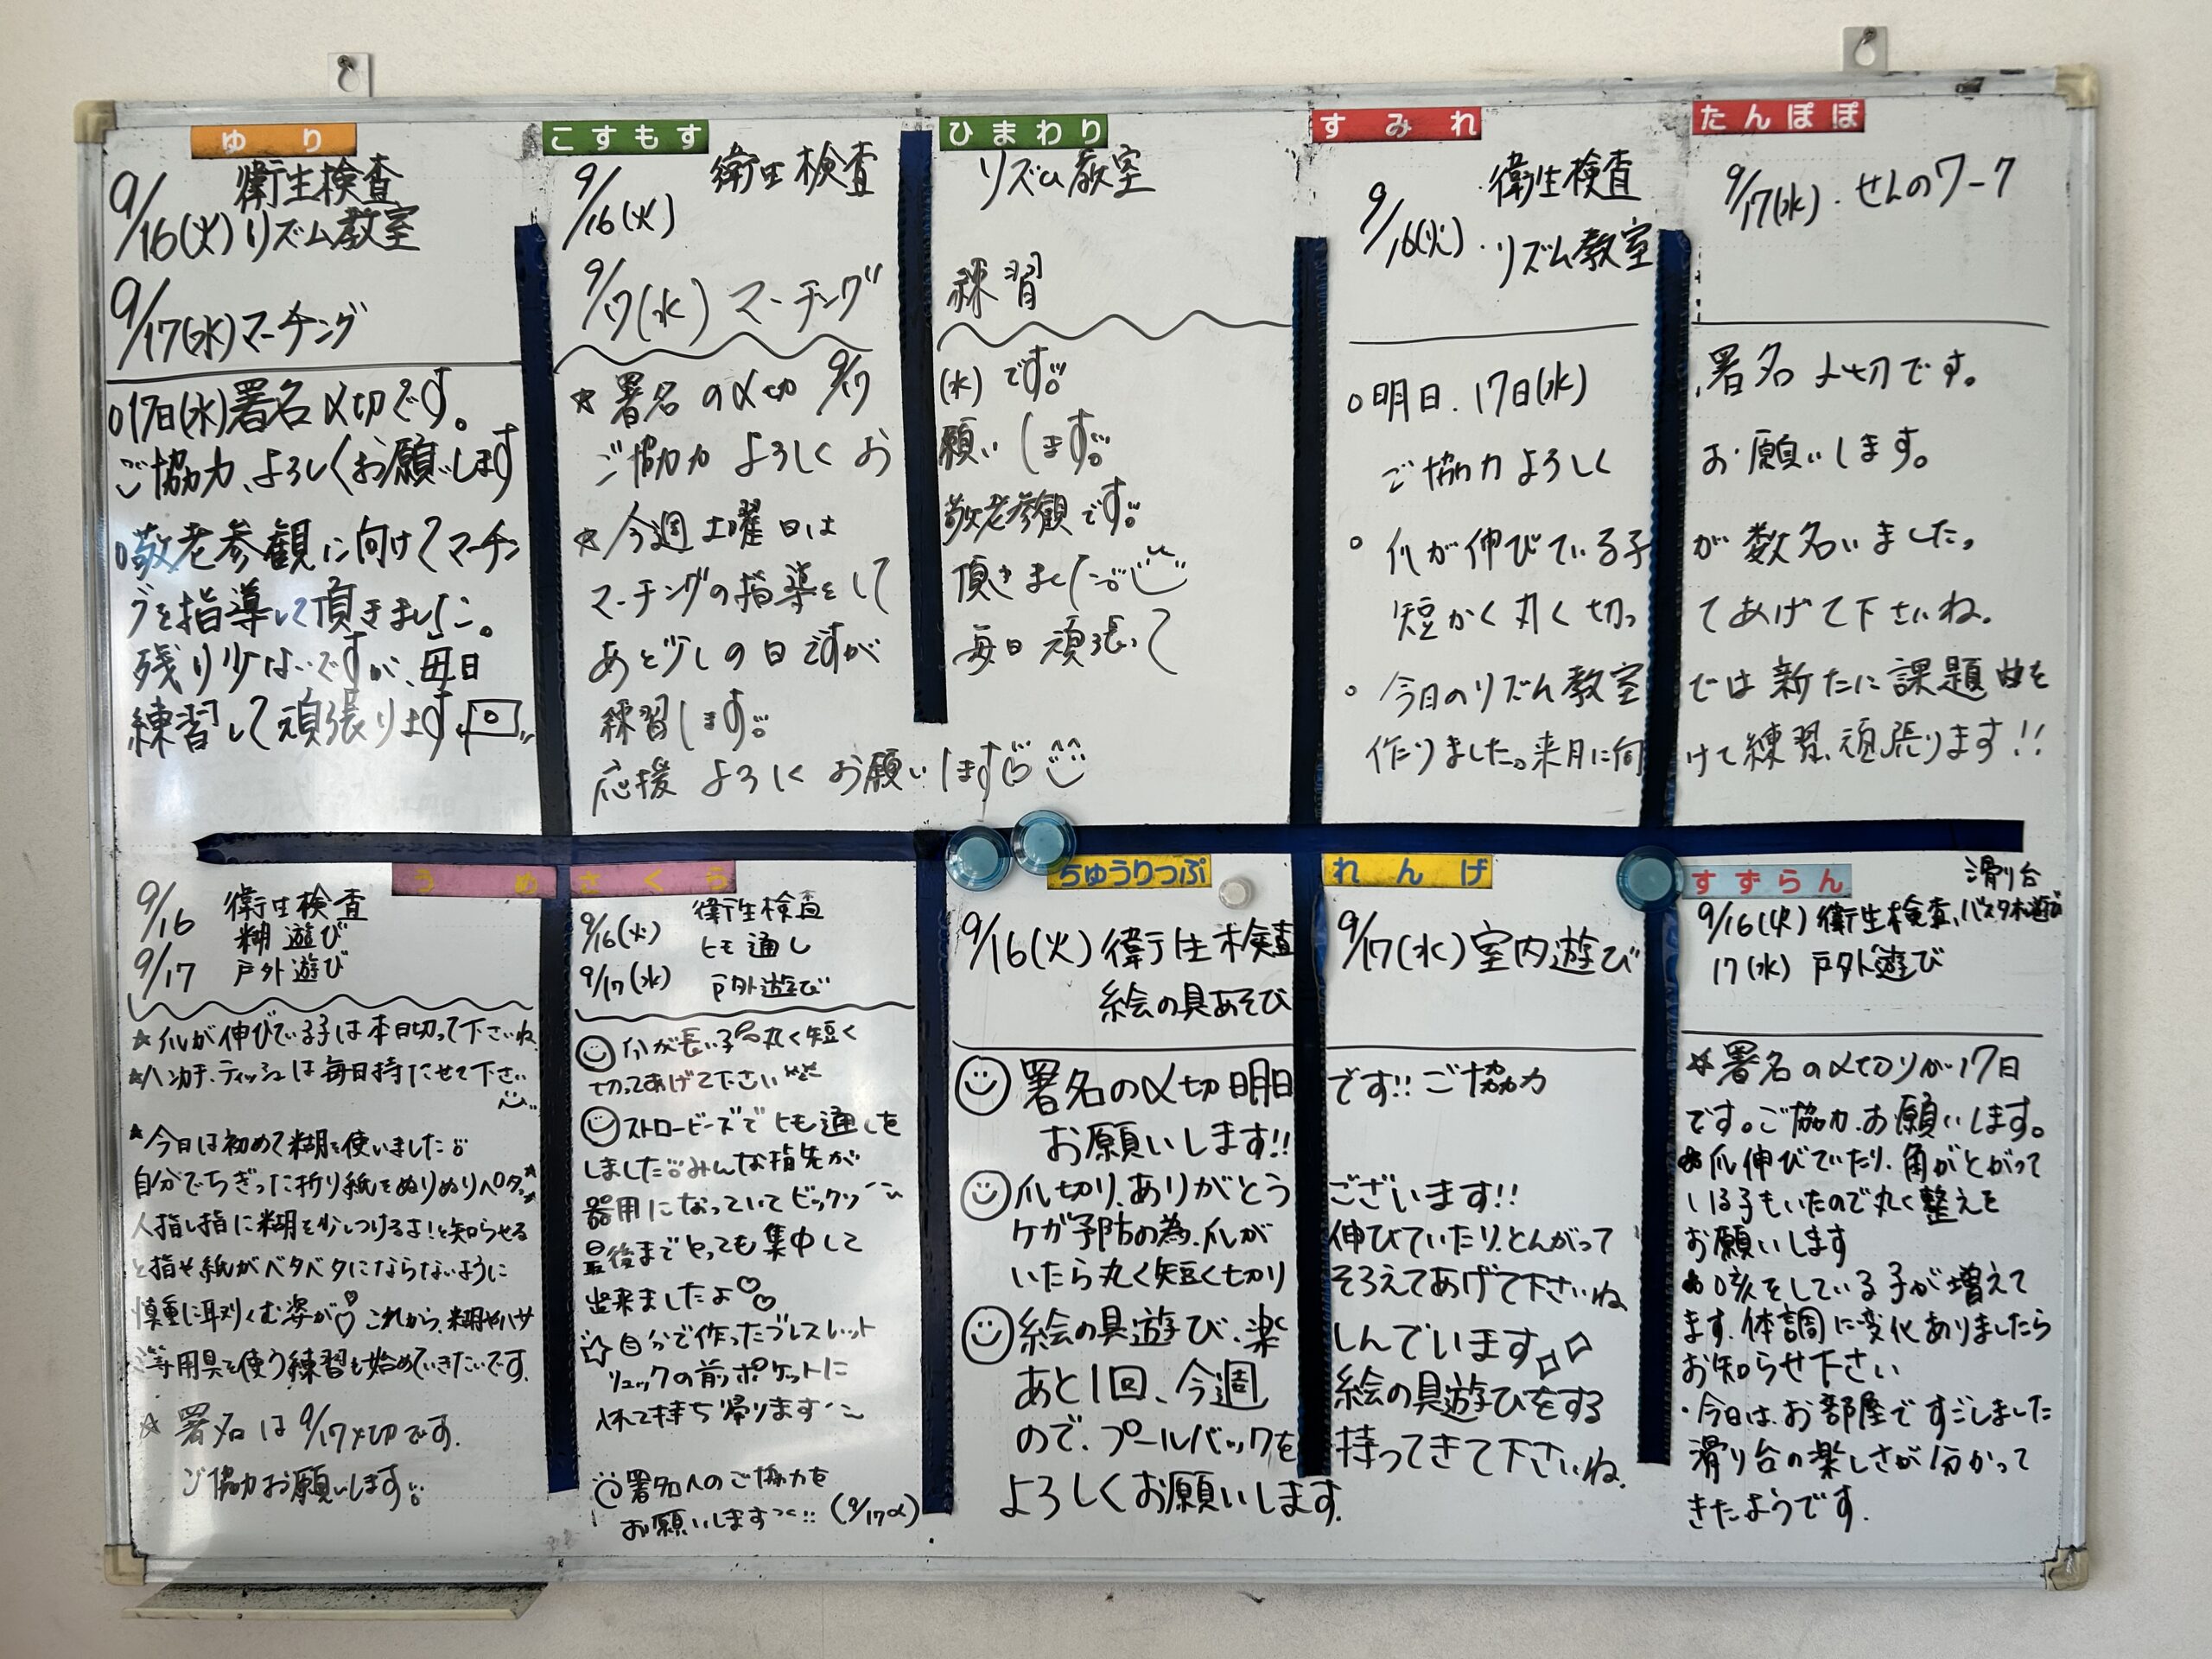 ゆり
9/16(火) 衛生検査
リズム教室
9/17(水) マーチング
○17日(水)署名〆切です。
ご協力、よろしくお願いします
○敬老参観に向けてマーチン
グを指導して頂きました。
残り少ないですが、毎日
練習して頑張ります
こすもす ひまわり
9/16(火) 衛生検査 リズム教室
9/17(水) マーチング 練習
☆署名の〆切 9/17(水)です。
ご協力よろしくお願いします。
☆今週土曜日は敬老参観です。
マーチングの指導をして頂きました。
あと少しの日ですが毎日頑張って
練習します。
応援よろしくお願いします
すみれ たんぽぽ
9/16(火)・衛生検査
・リズム教室
9/17(水)・せんのワーク
○明日、17日(水)署名〆切です。
ご協力よろしくお願いします。
○爪が伸びている子が数名いました。
短かく丸く切ってあげて下さいね。
○今日のリズム教室では新たに課題曲を
作りました。来月に向けて練習、頑張ります!!
うめ
9/16 衛生検査
糊遊び
9/17 戸外遊び
☆爪が伸びている子は本日切って下さいね
☆ハンカチ、ティッシュは毎日持たせて下さい
☆今日は初めて糊を使いました。
自分でちぎった折り紙をぬりぬりペタッ
人指し指に糊を少しつけるよ!と知らせる
と指や紙がベタベタにならないように
慎重に取りくむ姿が♡これから、糊やハサ
ミ等用具を使う練習も始めていきたいです。
☆署名は9/17〆切です。
ご協力お願いします。
さくら
9/16(火) 衛生検査
ヒモ通し
9/17(水) 戸外遊び
爪が長い子も丸く短く
切ってあげて下さい
ストロービーズでヒモ通しを
しました。みんな指先が
器用になっていてビックリ
最後までとっても集中して
出来ましたよ♡♡
☆自分で作ったブレスレット
リュックの前ポケットに
入れて持ち帰ります
署名へのご協力を
お願いします (9/17〆)
ちゅうりっぷ れんげ
9/16(火) 衛生検査
絵の具あそび
9/17(水) 室内遊び
署名の〆切明日です!!ご協力
お願いします!!
爪切り、ありがとうございます!!
ケガ予防の為、爪が伸びていたり、とんがって
いたら丸く短く切りそろえてあげて下さいね
絵の具遊び、楽しんでいます
あと1回、今週絵の具遊びをする
ので、プールバックを持ってきて下さいね。
よろしくお願いします。
すずらん
滑り台
9/16(火) 衛生検査、バスタオル遊び
17(水) 戸外遊び
☆署名の〆切りが17日
です。ご協力、お願いします。
爪伸びていたり、角がとがって
いる子もいたので丸く整えを
お願いします
咳をしている子が増えて
ます。体調に変化ありましたら
お知らせ下さい
・今日は、お部屋ですごしました
滑り台の楽しさが分かって
きたようです。